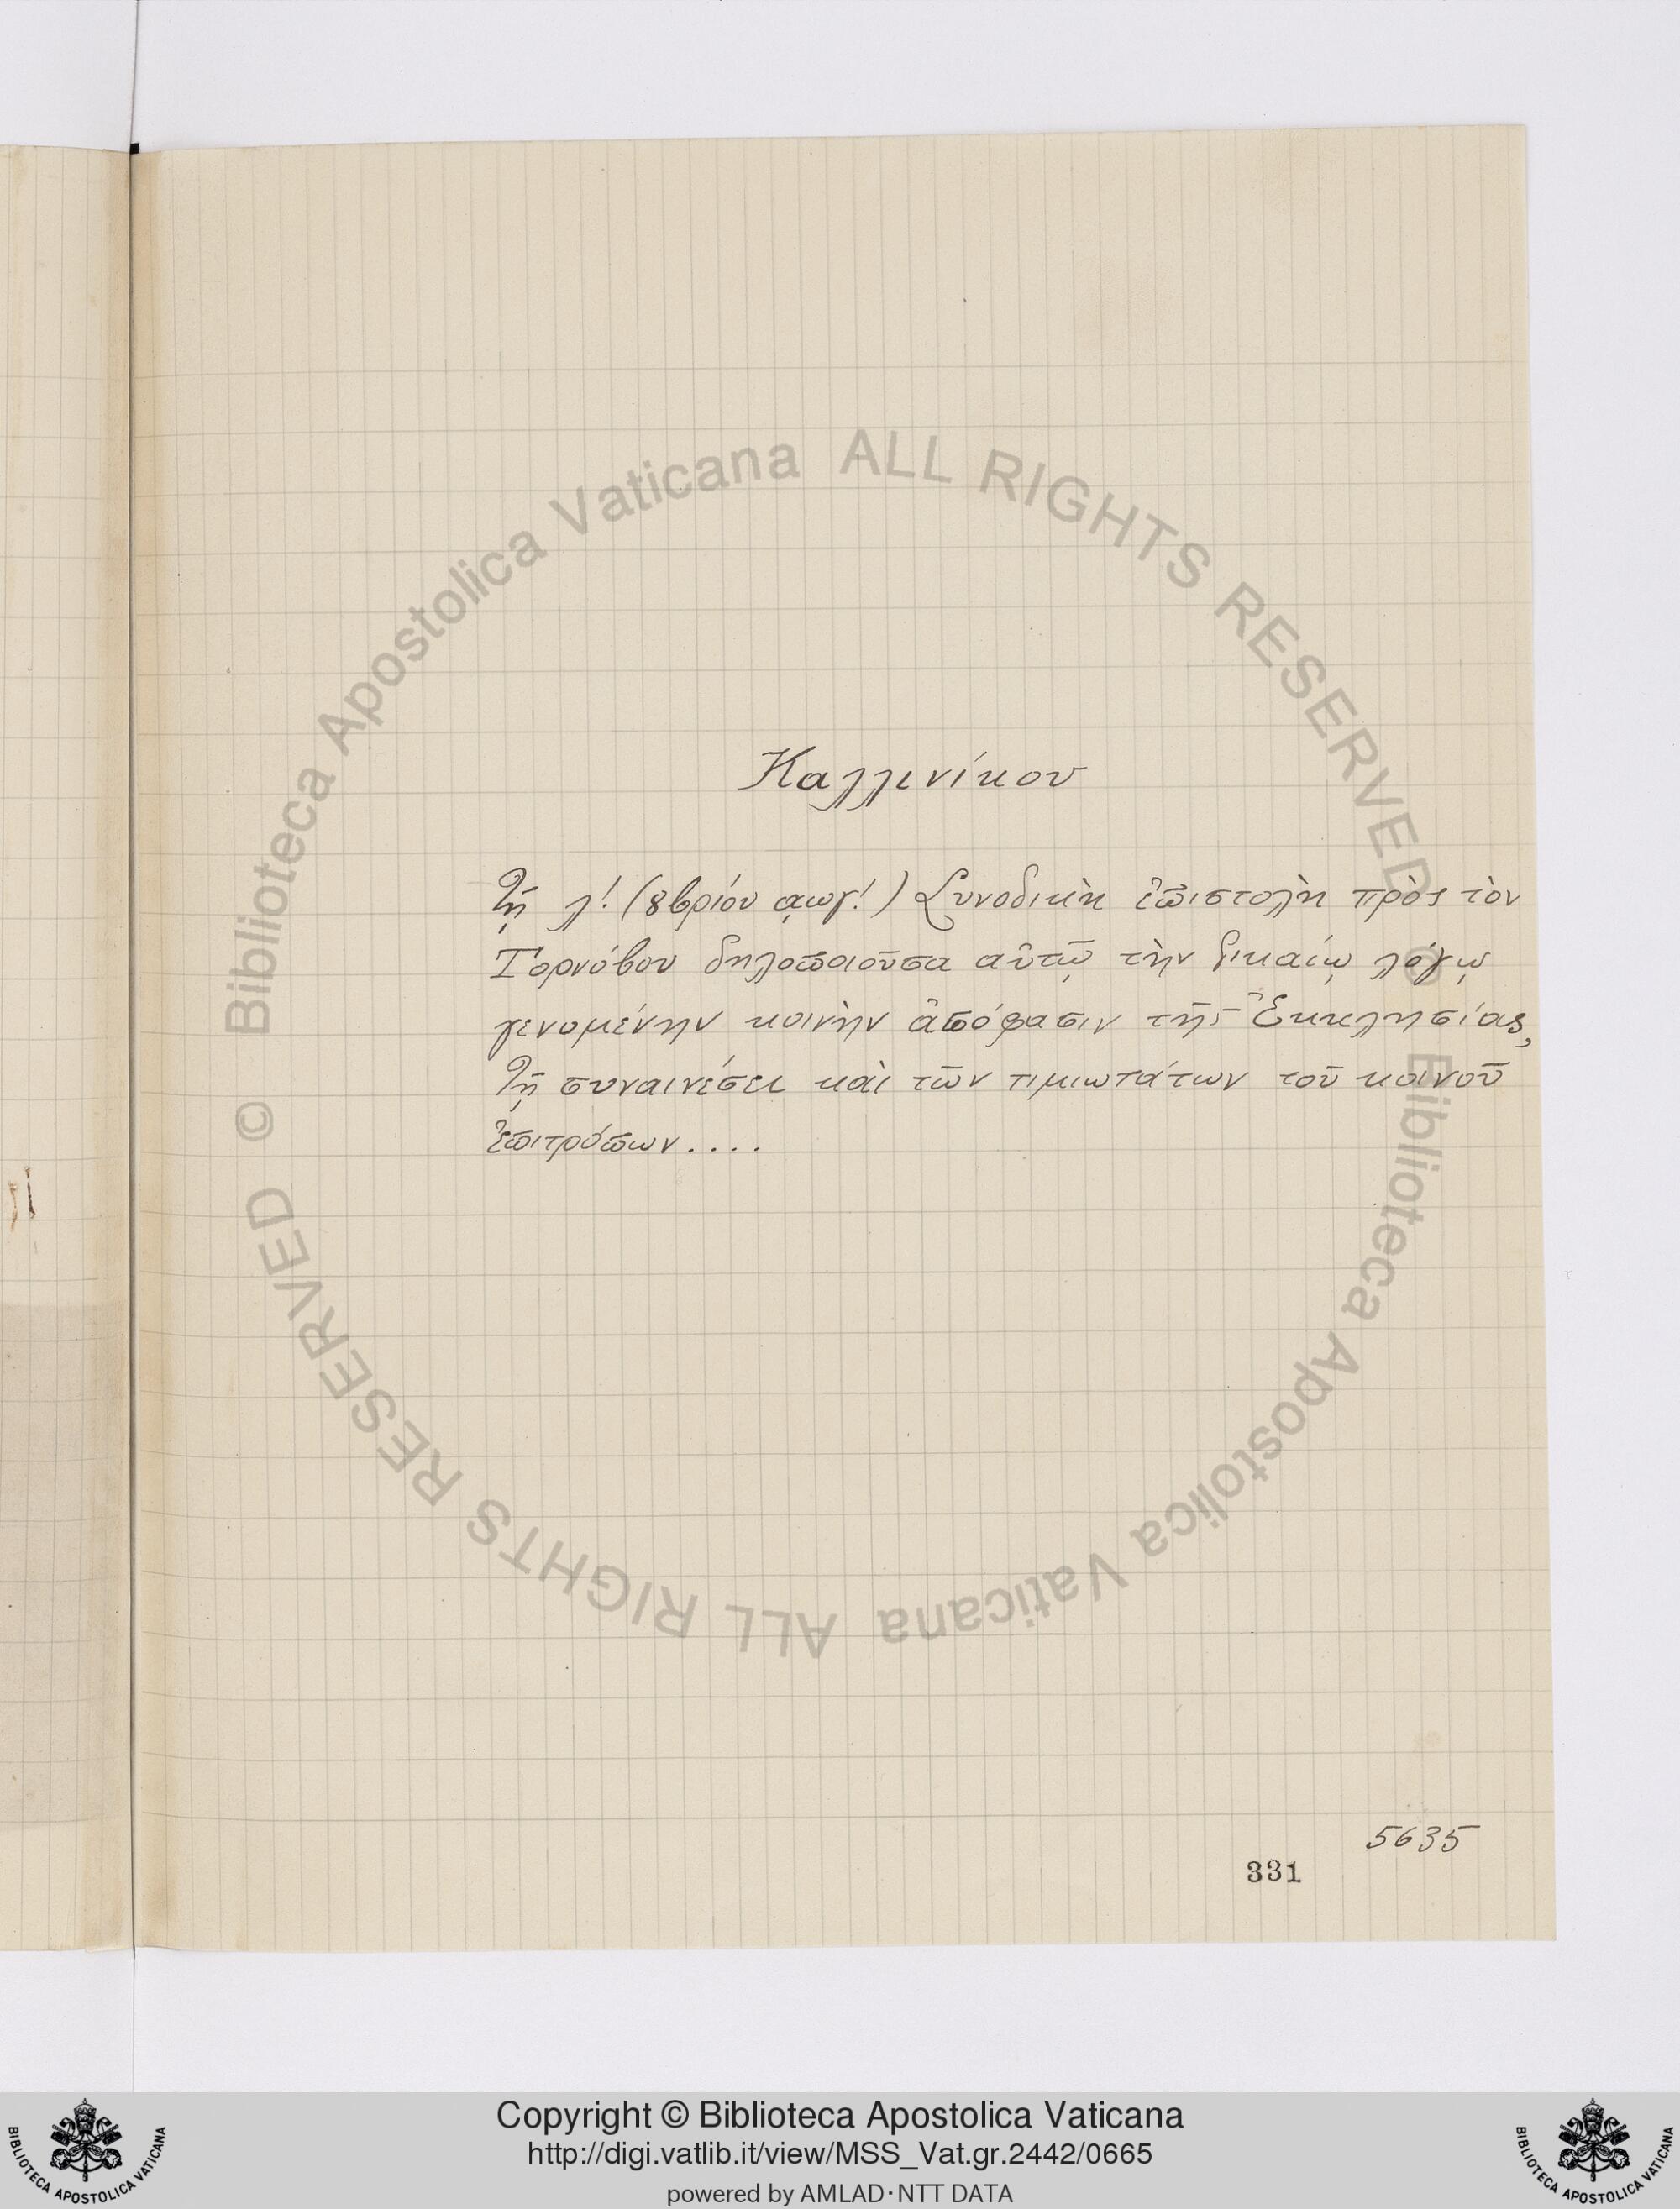 Καλλινίκου
Τῇ λ! (8βρίου ͵αωγ!) Συνοδικὴ ἐπιστολὴ πρὸς τὸν
Τορνόβου δηλοποιοῦσα αὐτῷ τὴν δικαίῳ λόγῳ
γενομένην κοινὴν ἀπόφασιν τῆς Ἐκκλησίας,
Τῇ συναινέσει καὶ τῶν τιμιωτάτων τοῦ κοινοῦ
ἐπιτρόπων....
5635
331
© Biblioteca Apostolica Vaticana ALL RIGHTS RESERVED
© Biblioteca Apostolica Vaticana ALL RIGHTS RESERVED
Copyright © Biblioteca Apostolica Vaticana
http://digi.vatlib.it/view/MSS_Vat.gr.2442/0665
powered by AMLAD·NTT DATA
BIBLIOTECA APOSTOLICA VATICANA
BIBLIOTECA APOSTOLICA VATICANA